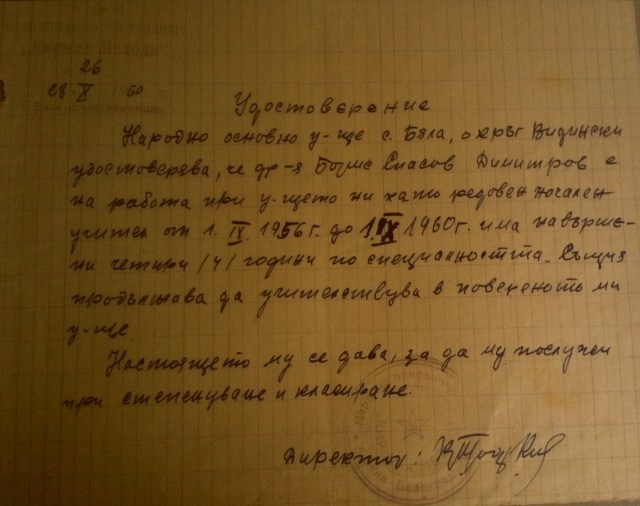 26
28 X 60
Удостоверение
Народно основно у-ще с. Бяла, окръг Видински
удостоверява, че др-я Борис Спасов Димитров е
на работа при у-щето ни като редовен
учител от 1. IX. 1956 г. до 1. IX 1960 г. има навърше-
ни четири /4/ години по специалността. Същия
продължава да учителствува в повереното ми
у-ще.
Настоящето му се дава, за да му послужи
при степенуване и класиране.
Директор: